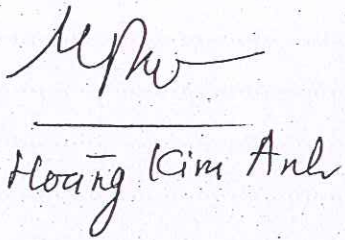 Hoàng Kim Anh